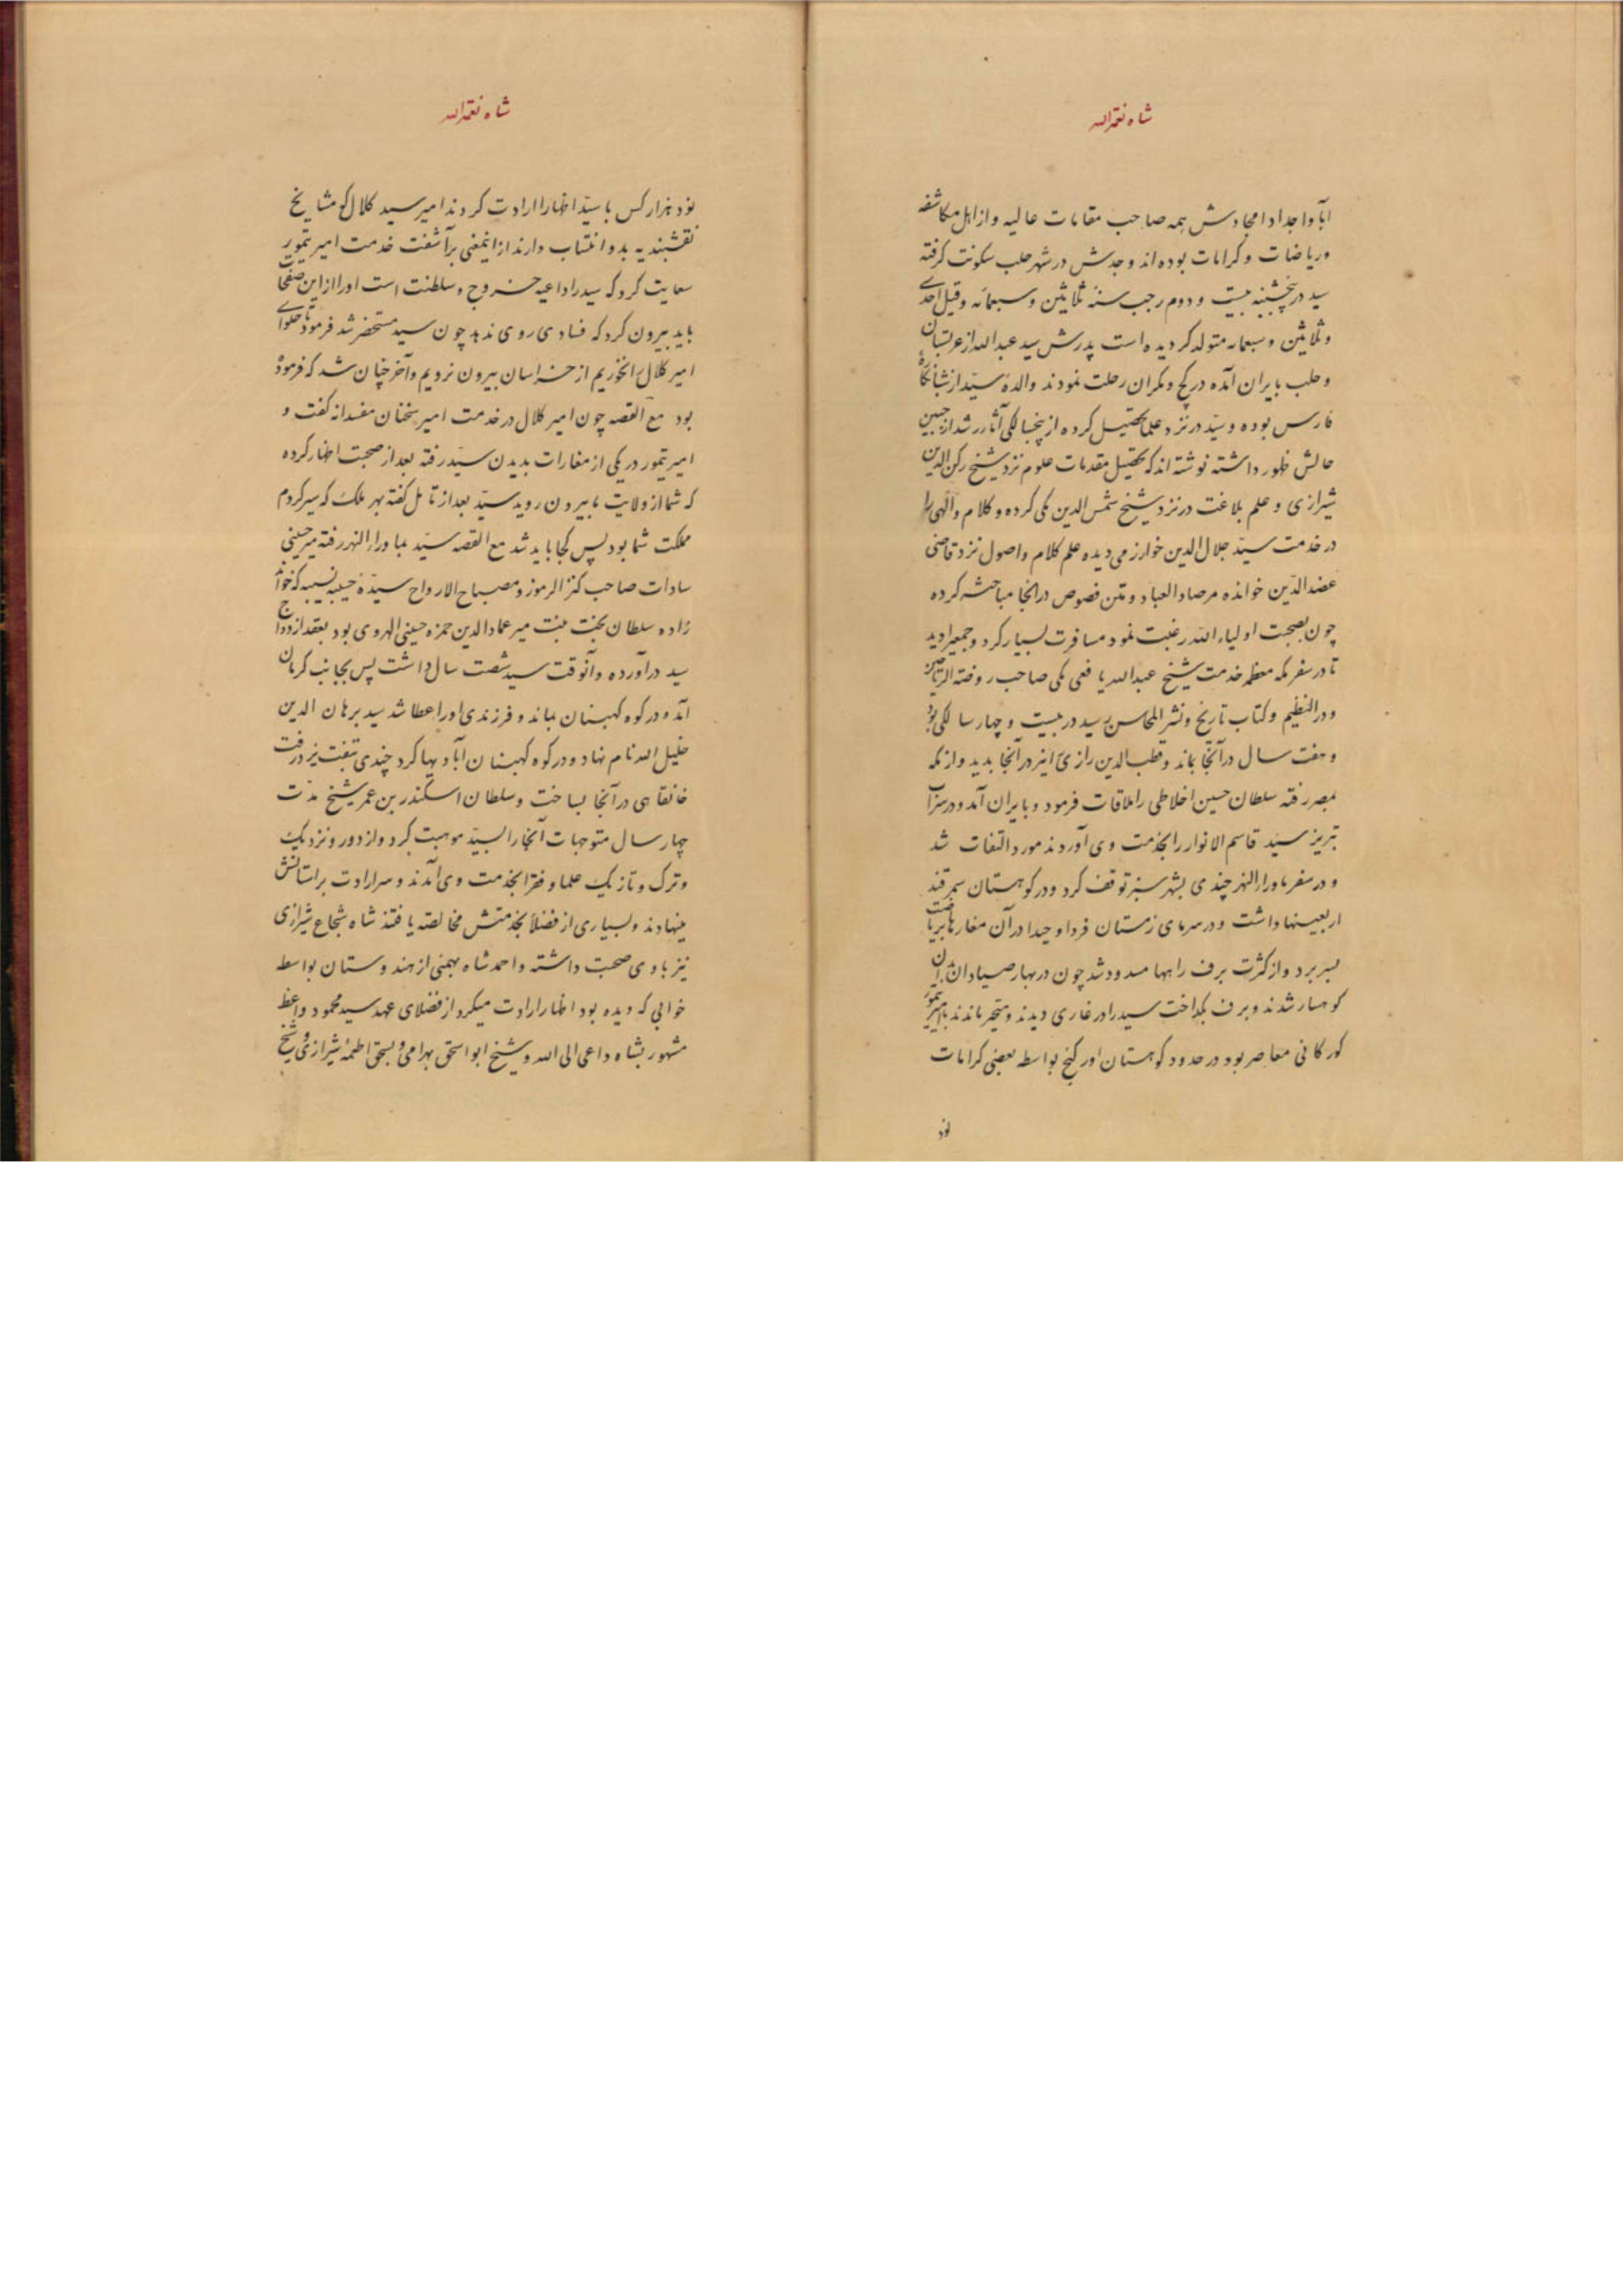 شاه نعمة الله
آبا و اجداد امجادش همه صاحب مقامات عالیه و از اهل مکاشفه
و ریاضات و کرامات بوده اند و جدش در شهر حلب سکونت گرفته
سید در پنجشنبه بیست و دوم رجب سنۀ ثلاثین و سبعمائه و قیل احدی
و ثلاثین و سبعمائه متولد گردیده است پدرش سید عبدالله از عربستان
و حلب بایران آمده در کیج و مکران رحلت نمودند والدۀ سیّد از شبانکارۀ
فارس بوده و سیّد در نزد علما تحصیل کرده از پنجسالگی آثار رشد از جبین
حالش ظهور داشته نوشته اند که تحصیل مقدمات علوم نزد شیخ رکن الدین
شیرازی و علم بلاغت در نزد شیخ شمس الدین مکی کرده و کلام و الهی را
در خدمت سیّد جلال الدین خوارزمی دیده علم کلام و اصول نزد قاضی
عضدالدّین خوانده مرصاد العباد و متن فصوص در انجا مباحثه کرده
چون بصحبت اولیاء الله رغبت نمود مسافرت بسیار کرد و جمعیرا دید
تا در سفر مکه معظمه خدمت شیخ عبدالله یافعی مکی صاحب روضة الریاحین
و در النظیم و کتاب تاریخ و نشر المحاسن رسید در بیست و چهار سالگی بود
و هفت سال در آنجا بماند و قطب الدین رازی را نیز در آنجا بدید و از مکه
بمصر رفته سلطان حسین اخلاطی را ملاقات فرمود و بایران آمد و در سراب
تبریز سیّد قاسم الانوار را بخدمت وی آوردند مورد التفات شد
و در سفر ماوراء النهر چندی بشهر سبز توقف کرد و در کوهستان سمرقند
اربعینها داشت و در سرمای زمستان فردا وحیدا در آن مغارها بریاضت
بسر برد و از کثرت برف راهها مسدود شد چون در بهار صیادان بدان
کوهسار شدند و برف بگداخت سید را در غاری دیدند و متحیر ماندند با امیر تیمور
کورکانی معاصر بود در حدود کوهستان اور کنج بواسطه بعضی کرامات
نود
شاه نعمة الله
نود هزار کس با سیّد اظهار ارادت کردند امیر سید کلال که مشایخ
نقشبندیه بدو انتساب دارند از اینمعنی بر آشفت خدمت امیر تیمور
سعایت کرد که سید را داعیه خروج و سلطنت است او را از این صفحات
باید بیرون کرد که فسادی روی ندهد چون سید مستحضر شد فرمود تا حلوای
امیر کلال را نخوریم از خراسان بیرون نرویم و آخر چنان شد که فرموده
بود مع القصه چون امیر کلال در خدمت امیر سخنان مفسدانه گفت و
امیر تیمور در یکی از مغارات بدیدن سیّد رفته بعد از صحبت اظهار کرده
که شما از ولایت ما بیرون روید سیّد بعد از تامل گفته بهر ملک که سیر کردم
مملکت شما بود پس کجا باید شد مع القصه سیّد بماوراء النهر رفته میر حسینی
سادات صاحب کنز الرموز و مصباح الارواح سیّدۀ حبیبه نسیبه که خواند
زاده سلطان بخت بنت میر عماد الدین حمزه حسینی الهروی بود بعقد ازدواج
سید در آورده و آنوقت سید شصت سال داشت پس بجانب کرمان
آمد و در کوه کهبنان بماند و فرزندی او را عطا شد سید برهان الدین
خلیل الله نام نهاد و در کوه کهبنان آبادیها کرد چندی بتفت یزد رفت
خانقاهی در آنجا بساخت و سلطان اسکندر بن عمر شیخ مدّت
چهار سال متوجهات آنجا را بسیّد موهبت کرد و از دور و نزدیک
و ترک و تازیک علما و فقرا بخدمت وی آمدند و سر ارادت بر استانش
مینهادند و بسیاری از فضلا بخدمتش مخالصه یافتند شاه شجاع شیرازی
نیز با وی صحبت داشته و احمد شاه بهمنی از هندوستان بواسطه
خوابی که دیده بود اظهار ارادت میکرد از فضلای عهد سید محمود واعظ
مشهور بشاه داعی الی الله و شیخ ابو اسحق بهرامی و بسحق اطعمۀ شیرازی و شیخ